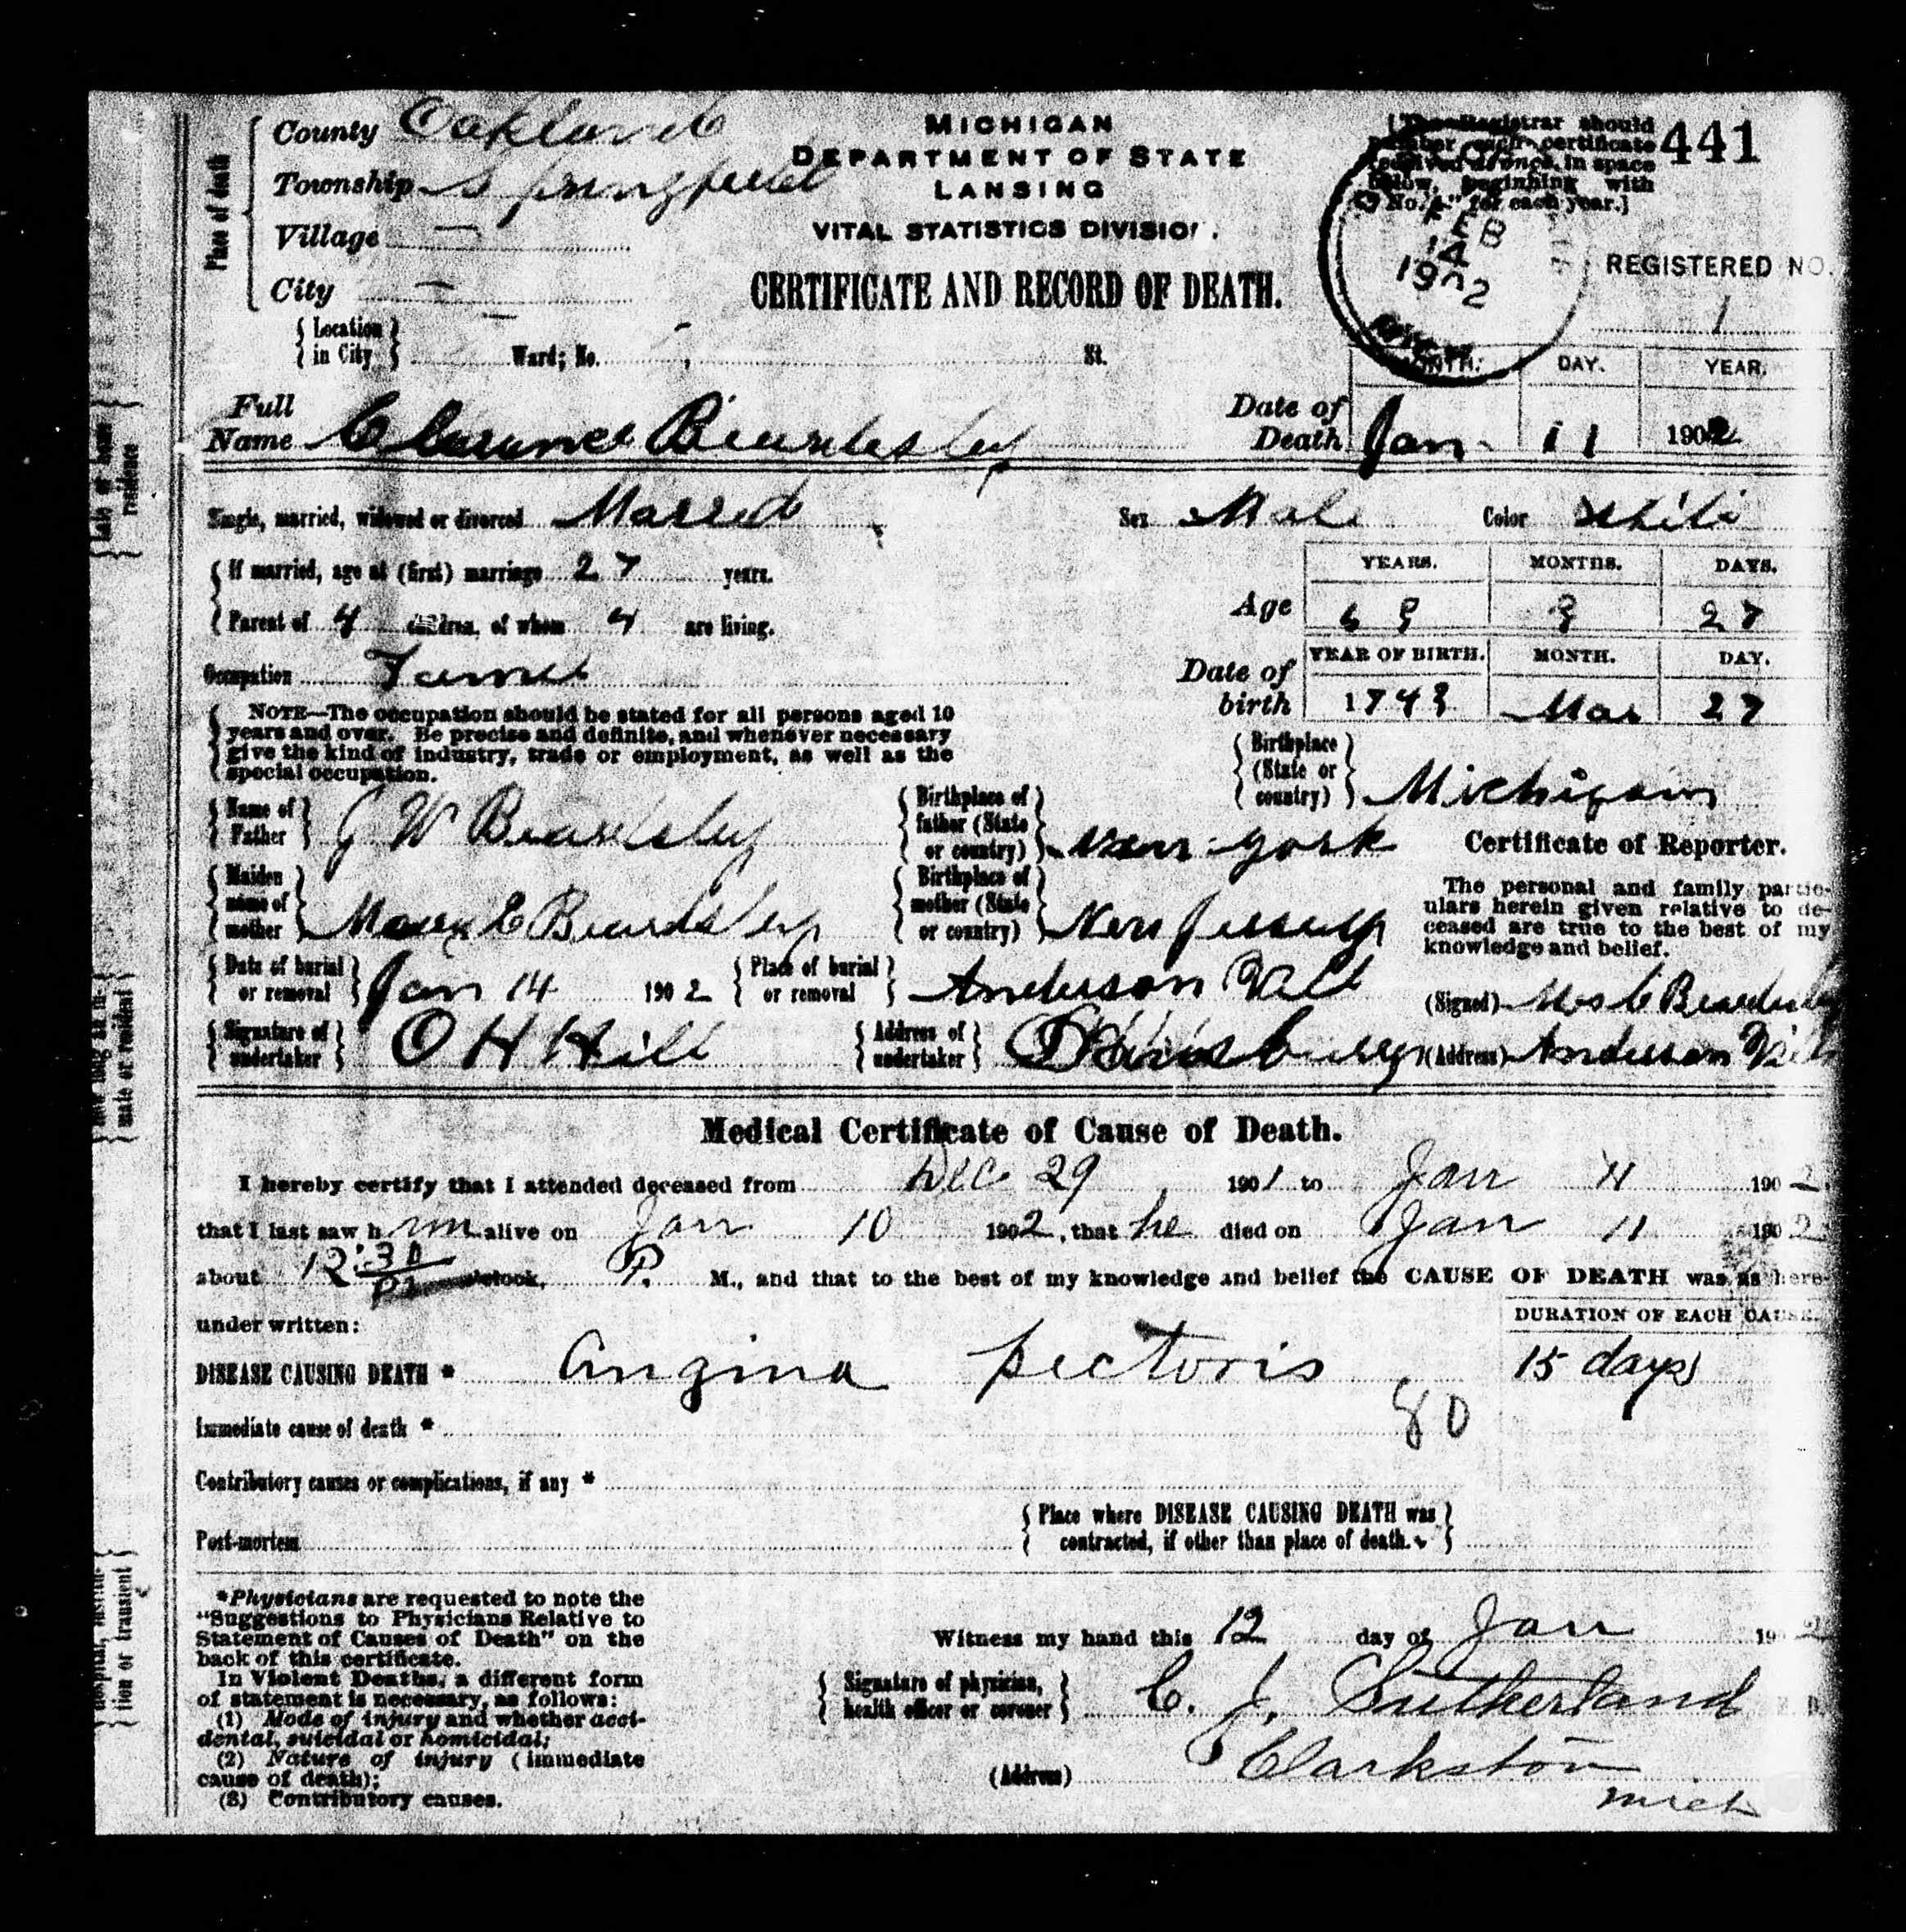 441
County Oakland
Township Springfield
Village —
City —
Place of death
MICHIGAN
DEPARTMENT OF STATE
LANSING
VITAL STATISTICS DIVISION.
CERTIFICATE AND RECORD OF DEATH.
[The Registrar should
number each certificate
received at once, in space
below, beginning with
No. 1" for each year.]
FEB
14
1902
REGISTERED NO.
1
Location in City Ward; No. , St.
Full Name Clarence Beardsley
Date of Death
MONTH. DAY. YEAR.
Jan 11 1902
Single, married, widowed or divorced Married
Sex Male Color White
If married, age at (first) marriage 27 years.
Parent of 4 children, of whom 4 are living.
Age
YEARS. MONTHS. DAYS.
27
Occupation Farmer
Date of birth
YEAR OF BIRTH. MONTH. DAY.
Mar 27
NOTE—The occupation should be stated for all persons aged 10
years and over. Be precise and definite, and whenever necessary
give the kind of industry, trade or employment, as well as the
special occupation.
Birthplace (State or country) Michigan
Name of Father G W Beardsley
Birthplace of father (State or country) New York
Maiden name of mother Mary E Beardsley
Birthplace of mother (State or country) New Jersey
Certificate of Reporter.
The personal and family partic-
ulars herein given relative to de-
ceased are true to the best of my
knowledge and belief.
Date of burial or removal Jan 14 1902
Place of burial or removal Anderson Vill
(Signed) Mrs C Beardsley
Signature of undertaker O H Hill
Address of undertaker Davisburg
(Address) Anderson Vill
Medical Certificate of Cause of Death.
I hereby certify that I attended deceased from Dec 29 1901 to Jan 11 1902
that I last saw him alive on Jan 10 1902, that he died on Jan 11 1902
about 12:30 o'clock, P. M., and that to the best of my knowledge and belief the CAUSE OF DEATH was as here-
under written:
DURATION OF EACH CAUSE.
DISEASE CAUSING DEATH * Angina pectoris 15 days
80
Immediate cause of death *
Contributory causes or complications, if any *
Post-mortem
Place where DISEASE CAUSING DEATH was
contracted, if other than place of death.
*Physicians are requested to note the
"Suggestions to Physicians Relative to
Statement of Causes of Death" on the
back of this certificate.
In Violent Deaths, a different form
of statement is necessary, as follows:
(1) Mode of injury and whether acci-
dental, suicidal or homicidal;
(2) Nature of injury (immediate
cause of death);
(3) Contributory causes.
Witness my hand this 12 day of Jan 1902
Signature of physician, health officer or coroner C. J. Sutherland
(Address) Clarkston
Mich
residence
male or resident
tion or transient